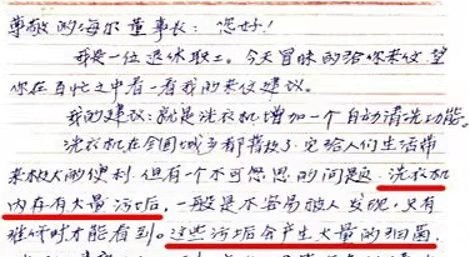 尊敬的海尔董事长：您好！
我是一位退休职工。今天冒昧的给你来仪望
你在百忙之中看一看我的来仪建议。
我的建议：就是洗衣机增加一个自动清洗功能。
洗衣机在全国城乡都普及了，它给人们生活带
来极大的便利，但有一个不可思思的问题，洗衣机
内存有大量污垢，一般是不容易被人发现，只有
维修时才能看到。这些污垢会产生大量的细菌，